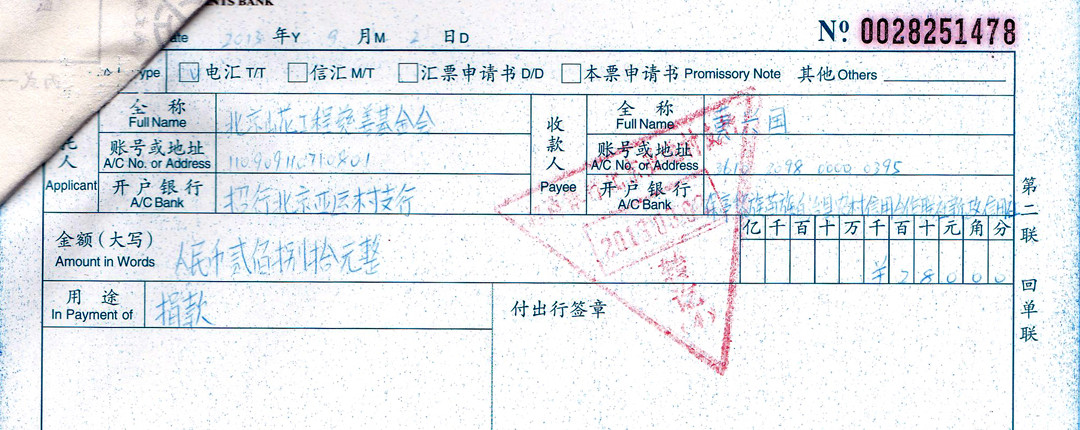 NTS BANK
ate 2013 年Y 9 月M 2 日D
№ 0028251478
ype 电汇 T/T 信汇 M/T 汇票申请书 D/D 本票申请书 Promissory Note 其他 Others
全 称 Full Name 北京山花工程慈善基金会
账号或地址 A/C No. or Address 110909110710801
人 Applicant
开户银行 A/C Bank 招行北京亚运村支行
收款人 Payee
全 称 Full Name
账号或地址 A/C No. or Address 2098 0000 0395
开户银行 A/C Bank
金额(大写) Amount in Words 人民币贰佰捌拾元整
亿 千 百 十 万 千 百 十 元 角 分
¥ 2 8 0 0 0
用 途 In Payment of 捐款
付出行签章
转讫
第二联 回单联